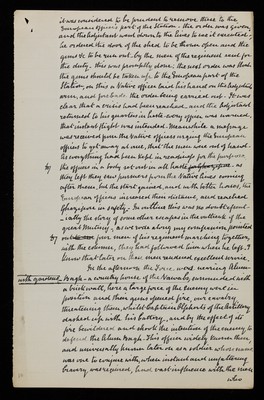 it was considered to be prudent to remove these to the
European Officers part of the Station. The order was given
and the Adjutant went down to the lines to see it executed;
he ordered the door of the shed to be thrown open and the
guns &c to be run out, by the men of the regiment used for
this duty. This was promptly done: the next order was that
the guns should be taken up to the European part of the
Station, on this a Native Officer laid his hand on the Adjutant's
arm, and the order being carried out. It was
clear that a crisis had been reached, and the Adjutant
returned to his quarters in haste every officer was warned,
that instant flight was intended. Meanwhile a message
was received from the Native Officers urging the European
officers to get away at once, that the men were out of hand.
As everything had been kept in readiness for the purpose
the officers in a body set out in all haste
they left they saw pursuers from the Native lines coming
after them, but the start gained, and with better horses, the
European officers increased their distance and reached
in safety. In outline this was no doubt
-cally the story of some other escapes in the outbreak of the
great Mutiny. as we rode along my companion pointed
out four men of his regiment marching together,
with the column, they had followed him when he left. I
know that later on these men rendered excellent service.
In the afternoon the Force, was nearing Alum
with gardens Bagh - a country house of the Nawabs, surrounded with
a brick wall, here a large force of the enemy were in
position and their guns opened fire, our cavalry
threatening them, whilst Captain Olpherts of the Artillery
dashed up with his battery, and by the effect of its
fire bewildered and shook the intention of the enemy to
defend the Alum Bagh. This officer widely known then
and universally known later on as a soldier whose name
was one to conjure with, when instant and unfaltering
bravery was required, had vast influence with the men
who